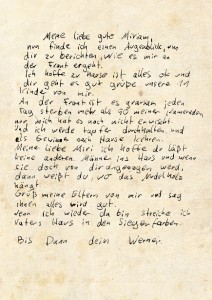 Meine liebe gute Miriam,
nun finde ich einen Augenblick, um
dir zu berichten wie es mir an
der Front ergeht.
Ich hoffe zu Hause ist alles ok und
dir geht es gut grüße unsere
Kinder von mir.
An der Front ist es grausam jeden
Tag sterben mehr als 90 meiner Kameraden
nur mich hat es noch nicht erwischt
und ich werd tapfer durchhalten und
als Gewinner nach Hause kehren.
Meine liebe Miri ich hoffe du läßt
keine anderen Männer ins Haus und wenn
sie doch von dir angezogen werd,
dann weißt du wo das Nudelholz
hängt
Grüß meine Eltern von mir und sag
ihnen alles wird gut.
wenn ich wieder da bin streiche ich
Vaters Haus in den Siegerfarben.
Bis Dann dein Werner